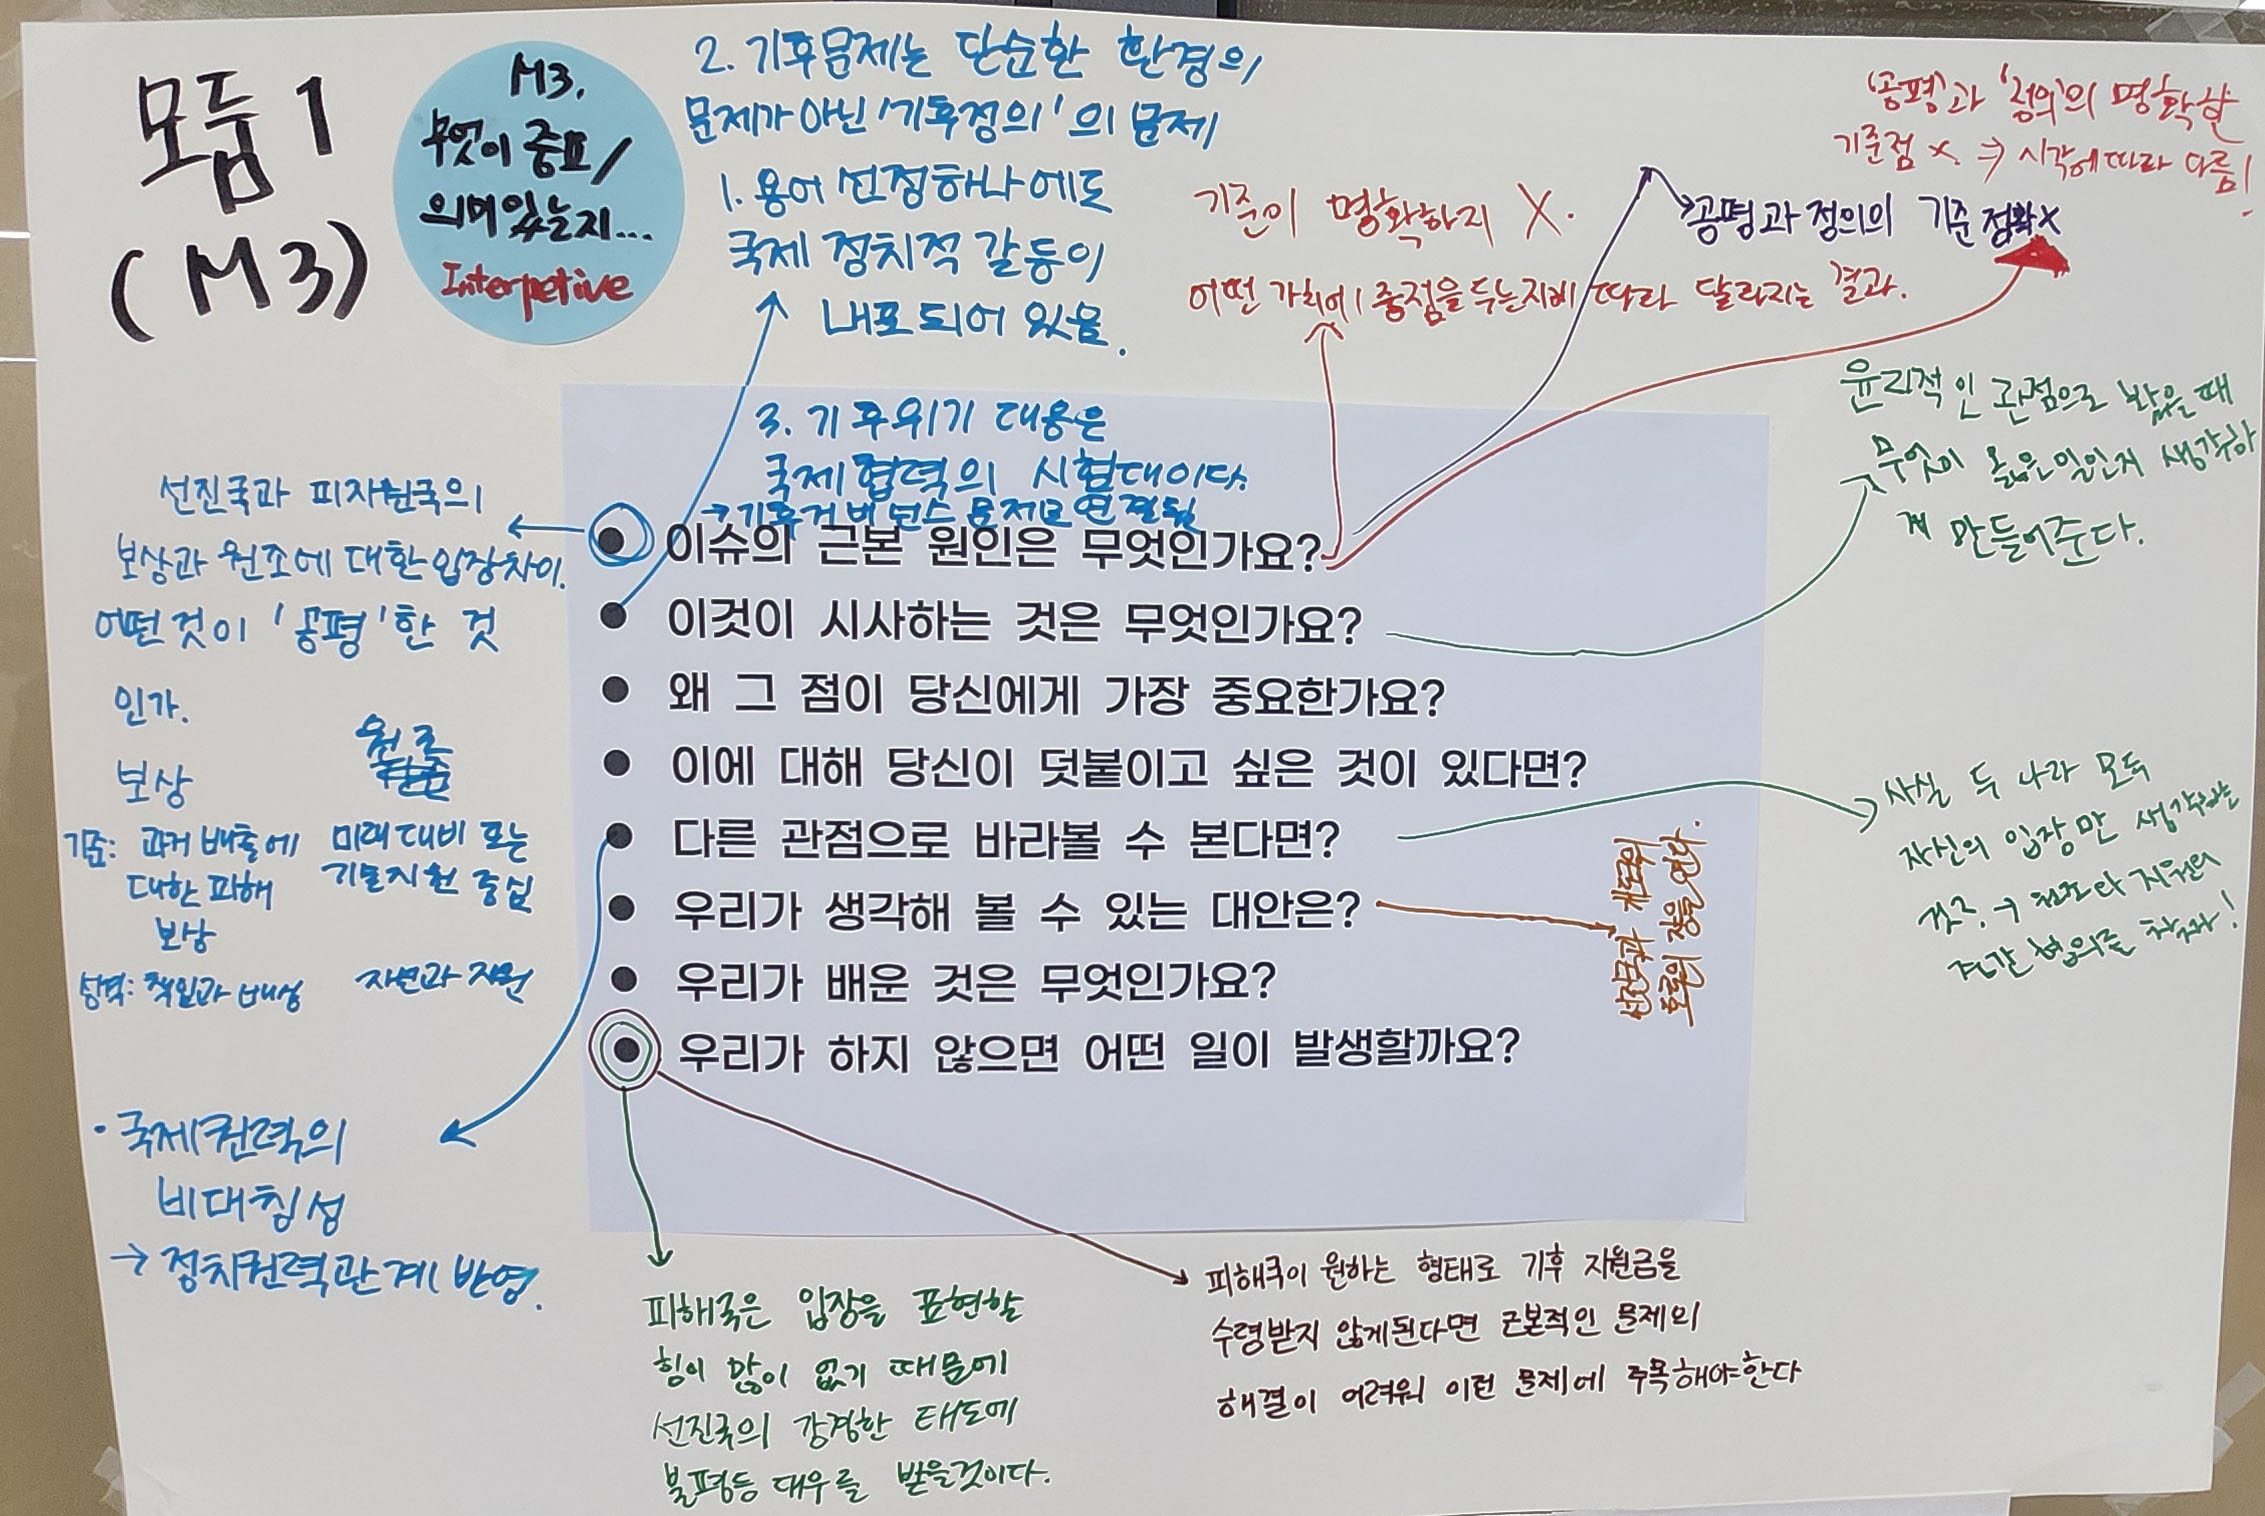 모둠 1
(M3)
M3.
무엇이 중요/
의미있는지...
Interpetive
2. 기후문제는 단순한 환경의
문제가 아닌 '기후정의'의 문제
1. 용어 선정하나에도
국제 정치적 갈등이
내포되어 있음.
기준이 명확하지 X.
어떤 가치에 중점을 두는지에 따라 달라지는 결과.
'공평'과 '정의'의 명확한
기준점 X. ⇒ 시각에 따라 다름!
공평과 정의의 기준 정확X
윤리적인 관점으로 봤을 때
무엇이 옳은 일인지 생각하
게 만들어준다.
3. 기후위기 대응은
국제협력의 시험대이다.
→ 기후거버넌스 문제로 연결됨
선진국과 피지원국의
보상과 원조에 대한 입장차이.
어떤것이 '공평'한 것
인가.
보상
원조
기준: 과거 배출에
대한 피해
보상
미래 대비 또는
기술지원 중심
성격: 책임과 배상
자선과 지원
● 이슈의 근본 원인은 무엇인가요?
● 이것이 시사하는 것은 무엇인가요?
● 왜 그 점이 당신에게 가장 중요한가요?
● 이에 대해 당신이 덧붙이고 싶은 것이 있다면?
● 다른 관점으로 바라볼 수 본다면?
● 우리가 생각해 볼 수 있는 대안은?
● 우리가 배운 것은 무엇인가요?
● 우리가 하지 않으면 어떤 일이 발생할까요?
선진국과 개도국의
장을 연다.
사실 두 나라 모두
자신의 입장만 생각하는
것? → 원조와 지원의
중간 협의를 찾자!
· 국제권력의
비대칭성
→ 정치권력관계 반영.
피해국은 입장을 표현할
힘이 많이 없기 때문에
선진국의 강경한 태도에
불평등 대우를 받을것이다.
피해국이 원하는 형태로 기후 지원금을
수령받지 않게된다면 근본적인 문제의
해결이 어려워 이런 문제에 주목해야한다